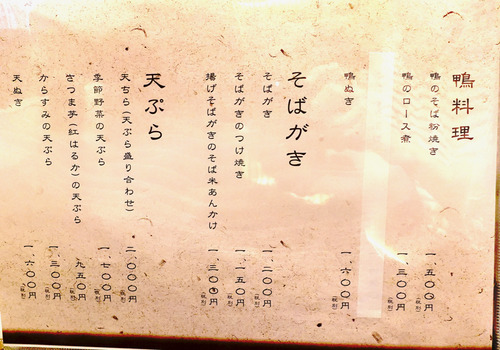 鴨料理
鴨のそば粉焼き 一、五〇〇円(税別)
鴨のロース煮 一、三〇〇円(税別)
鴨ぬき 一、六〇〇円(税別)
そばがき
そばがき 一、二〇〇円(税別)
そばがきのつけ焼き 一、一五〇円(税別)
揚げそばがきのそば米あんかけ 一、三〇〇円(税別)
天ぷら
天ちら(天ぷら盛り合わせ) 二、〇〇〇円(税別)
季節野菜の天ぷら 一、七〇〇円(税別)
さつま芋(紅はるか)の天ぷら 九五〇円(税別)
からすみの天ぷら 一、三〇〇円(税別)
天ぬき 一、六〇〇円(税別)